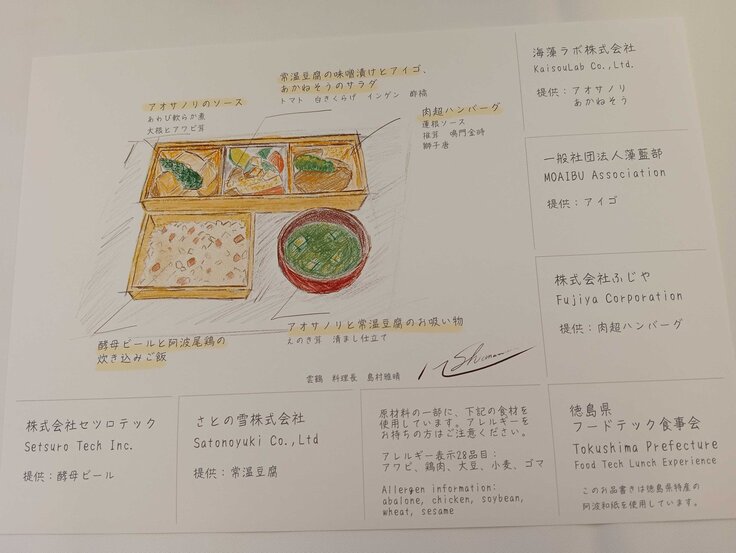 常温豆腐の味噌漬けとアイゴ、
あかねそうのサラダ
トマト 白きくらげ インゲン 酢橘
アオサノリのソース
あわび軟らか煮
大根とアワビ茸
肉超ハンバーグ
蓮根ソース
椎茸 鳴門金時
獅子唐
酵母ビールと阿波尾鶏の
炊き込みご飯
アオサノリと常温豆腐のお吸い物
えのき茸 清まし仕立て
雲鶴 料理長 島村雅晴
海藻ラボ株式会社
KaisouLab Co.,Ltd.
提供：アオサノリ
あかねそう
一般社団法人藻藍部
MOAIBU Association
提供：アイゴ
株式会社ふじや
Fujiya Corporation
提供：肉超ハンバーグ
株式会社セツロテック
Setsuro Tech Inc.
提供：酵母ビール
さとの雪株式会社
Satonoyuki Co.,Ltd
提供：常温豆腐
原材料の一部に、下記の食材を
使用しています。アレルギーを
お持ちの方はご注意ください。
アレルギー表示28品目：
アワビ、鶏肉、大豆、小麦、ゴマ
Allergen information:
abalone, chicken, soybean,
wheat, sesame
徳島県
フードテック食事会
Tokushima Prefecture
Food Tech Lunch Experience
このお品書きは徳島県特産の
阿波和紙を使用しています。